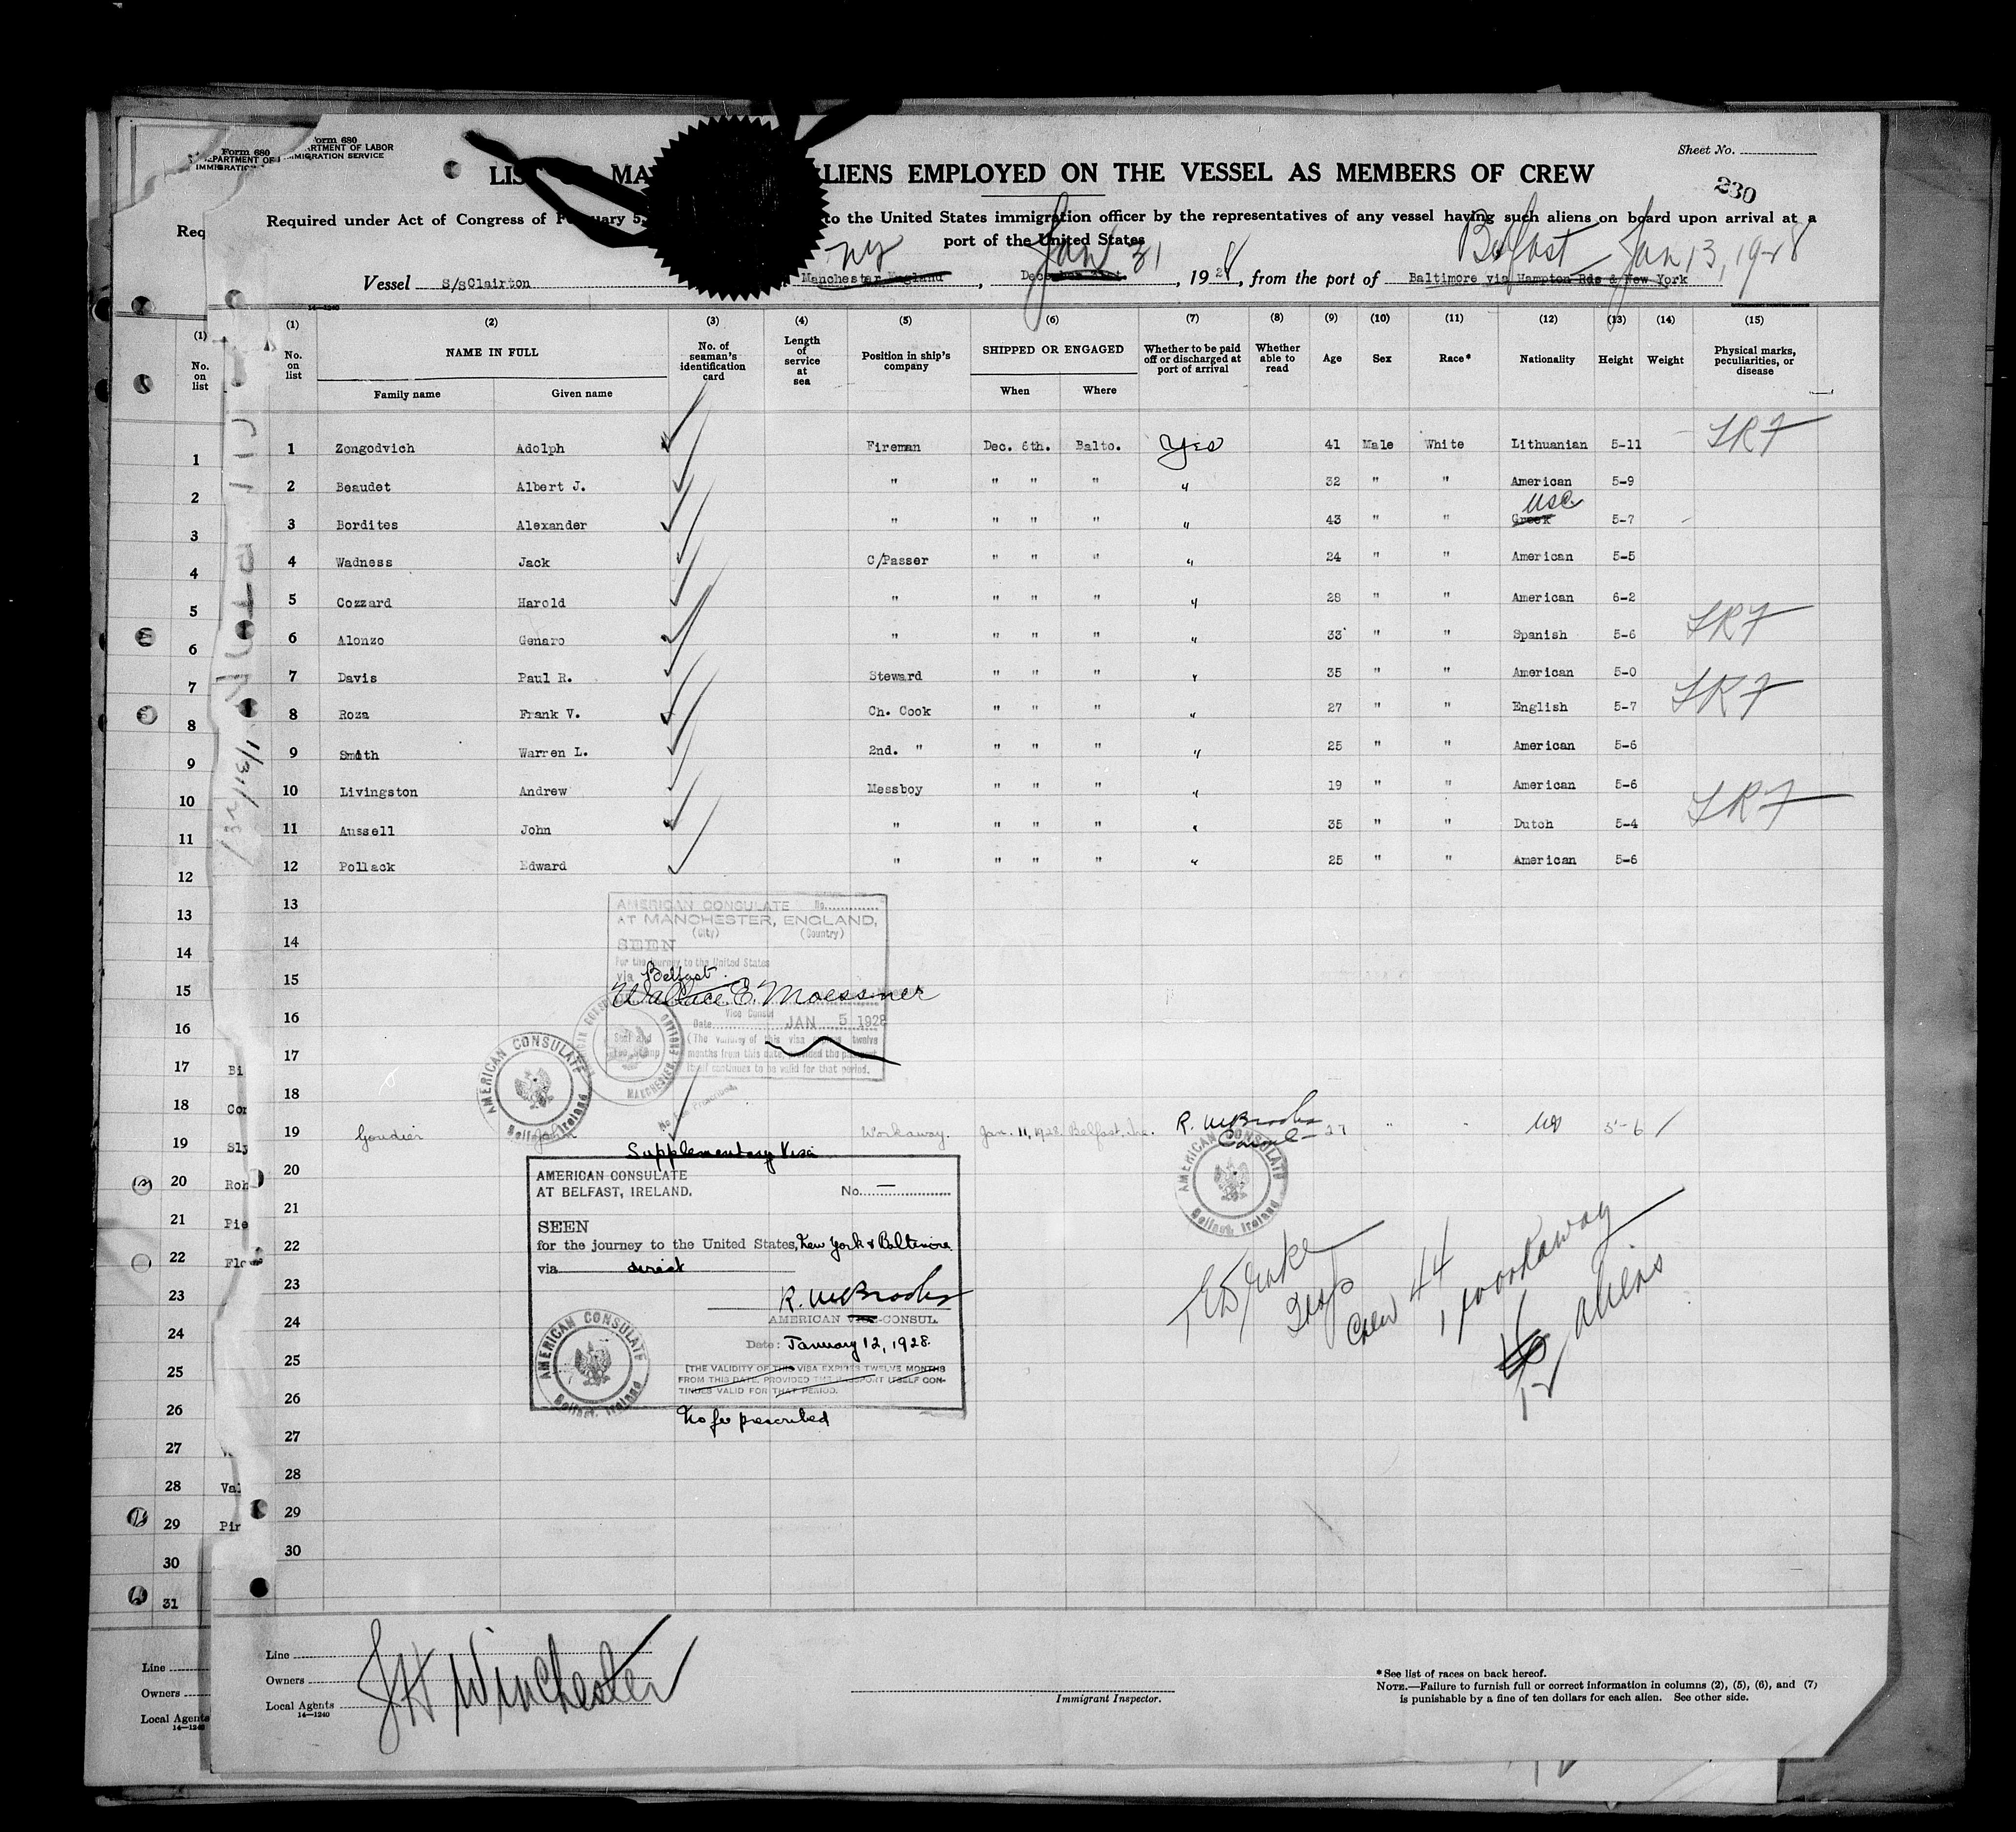 Form 680
DEPARTMENT OF
IMMIGRATION
Form 680
RTMENT OF LABOR
IMMIGRATION SERVICE
Sheet No.
LIST OR MA ALIENS EMPLOYED ON THE VESSEL AS MEMBERS OF CREW
230
Required under Act of Congress of February 5, to the United States immigration officer by the representatives of any vessel having such aliens on board upon arrival at a
port of the United States
Req
NY Jan 31 Belfast — Jan 13, 1928
Vessel S/S Clairton Manchester England, December 21st, 1928, from the port of Baltimore via Hampton Rds & New York
14—1240
(1) (1) (2) (3) (4) (5) (6) (7) (8) (9) (10) (11) (12) (13) (14) (15)
No. on list No. on list NAME IN FULL No. of seaman's identification card Length of service at sea Position in ship's company SHIPPED OR ENGAGED Whether to be paid off or discharged at port of arrival Whether able to read Age Sex Race* Nationality Height Weight Physical marks, peculiarities, or disease
Family name Given name When Where
1 1 Zongodvich Adolph Fireman Dec. 6th. Balto. Yes 41 Male White Lithuanian 5-11 SRF
2 2 Beaudet Albert J. " " " " " 32 " " American 5-9
USC
3 3 Bordites Alexander " " " " " 43 " " Greek 5-7 -
4 4 Wadness Jack C/Passer " " " " 24 " " American 5-5
5 5 Cozzard Harold " " " " " 28 " " American 6-2
6 6 Alonzo Genaro " " " " " 33 " " Spanish 5-6 SRF
7 7 Davis Paul R. Steward " " " " 35 " " American 5-0
8 8 Roza Frank V. Ch. Cook " " " " 27 " " English 5-7 SRF
9 9 Smith Warren L. 2nd. " " " " " 25 " " American 5-6
10 10 Livingston Andrew Messboy " " " " 19 " " American 5-6
11 11 Aussell John " " " " " 35 " " Dutch 5-4 SRF
12 12 Pollack Edward " " " " " 25 " " American 5-6
13 13
AMERICAN CONSULATE No.
AT MANCHESTER, ENGLAND,
(City) (Country)
14 14
SEEN
For the journey to the United States
via Belfast
15 15
Wallace E. Moessner
Vice Consul
16 16
Date JAN 5 1928
(The validity of this visa expires twelve
months from this date, provided the passport
itself continues to be valid for that period.
17 17
AMERICAN CONSULATE
Belfast, Ireland
18 18
No Fee Prescribed
19 19 Goudier John Workaway. Jan. 11, 1928. Belfast, Ire. 27 " " 5-6
R. McBrooks
Consul
AMERICAN CONSULATE
Belfast, Ireland
Supplementary Visa
20 20
AMERICAN CONSULATE
AT BELFAST, IRELAND. No. —
21 21
SEEN
for the journey to the United States, New York & Baltimore
22 22
via direct
23 23
R. McBrooks
24 24
AMERICAN VICE-CONSUL.
Date: January 12, 1928.
AMERICAN CONSULATE
Belfast, Ireland
25 25
[THE VALIDITY OF THIS VISA EXPIRES TWELVE MONTHS
FROM THIS DATE, PROVIDED THE PASSPORT ITSELF CON-
TINUES VALID FOR THAT PERIOD.
26 26
No fee prescribed
Crew 44
1 workaway
aliens
12
27 27
28 28
29 29
30 30
31
Bi
Cor
Sly
Roh
Pie
Flo
Val
Pir
Line
Owners
Local Agents
14—1240
Line
Owners
Local Agents
14—1240
JH Winchester
Immigrant Inspector.
*See list of races on back hereof.
NOTE.—Failure to furnish full or correct information in columns (2), (5), (6), and (7)
is punishable by a fine of ten dollars for each alien. See other side.